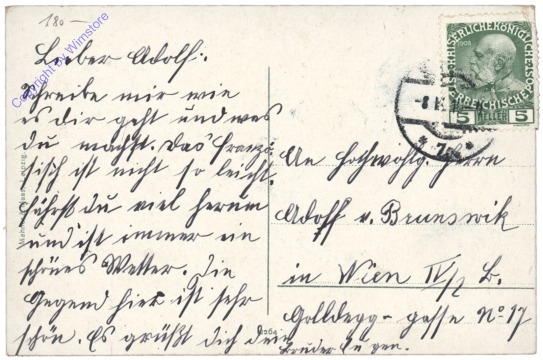 180 -
Copyright by Wimstore
Lieber Adolf:
Schreibe mir wie
es dir geht und was
du machst. Das Franzö-
sisch ist nicht so leicht.
Fährst du viel herum
und ist immer ein
schönes Wetter. Die
Gegend hier ist sehr
schön. Es grüßt dich dein
Bruder Eugen.
KAISERLICHE KÖNIGLICHE
ÖSTERREICHISCHE
1908
5 HELLER 5
An Hochwohlg. Herrn
Adolf v. Brunswik
in Wien IV/2 B.
Goldegg-gasse No 17